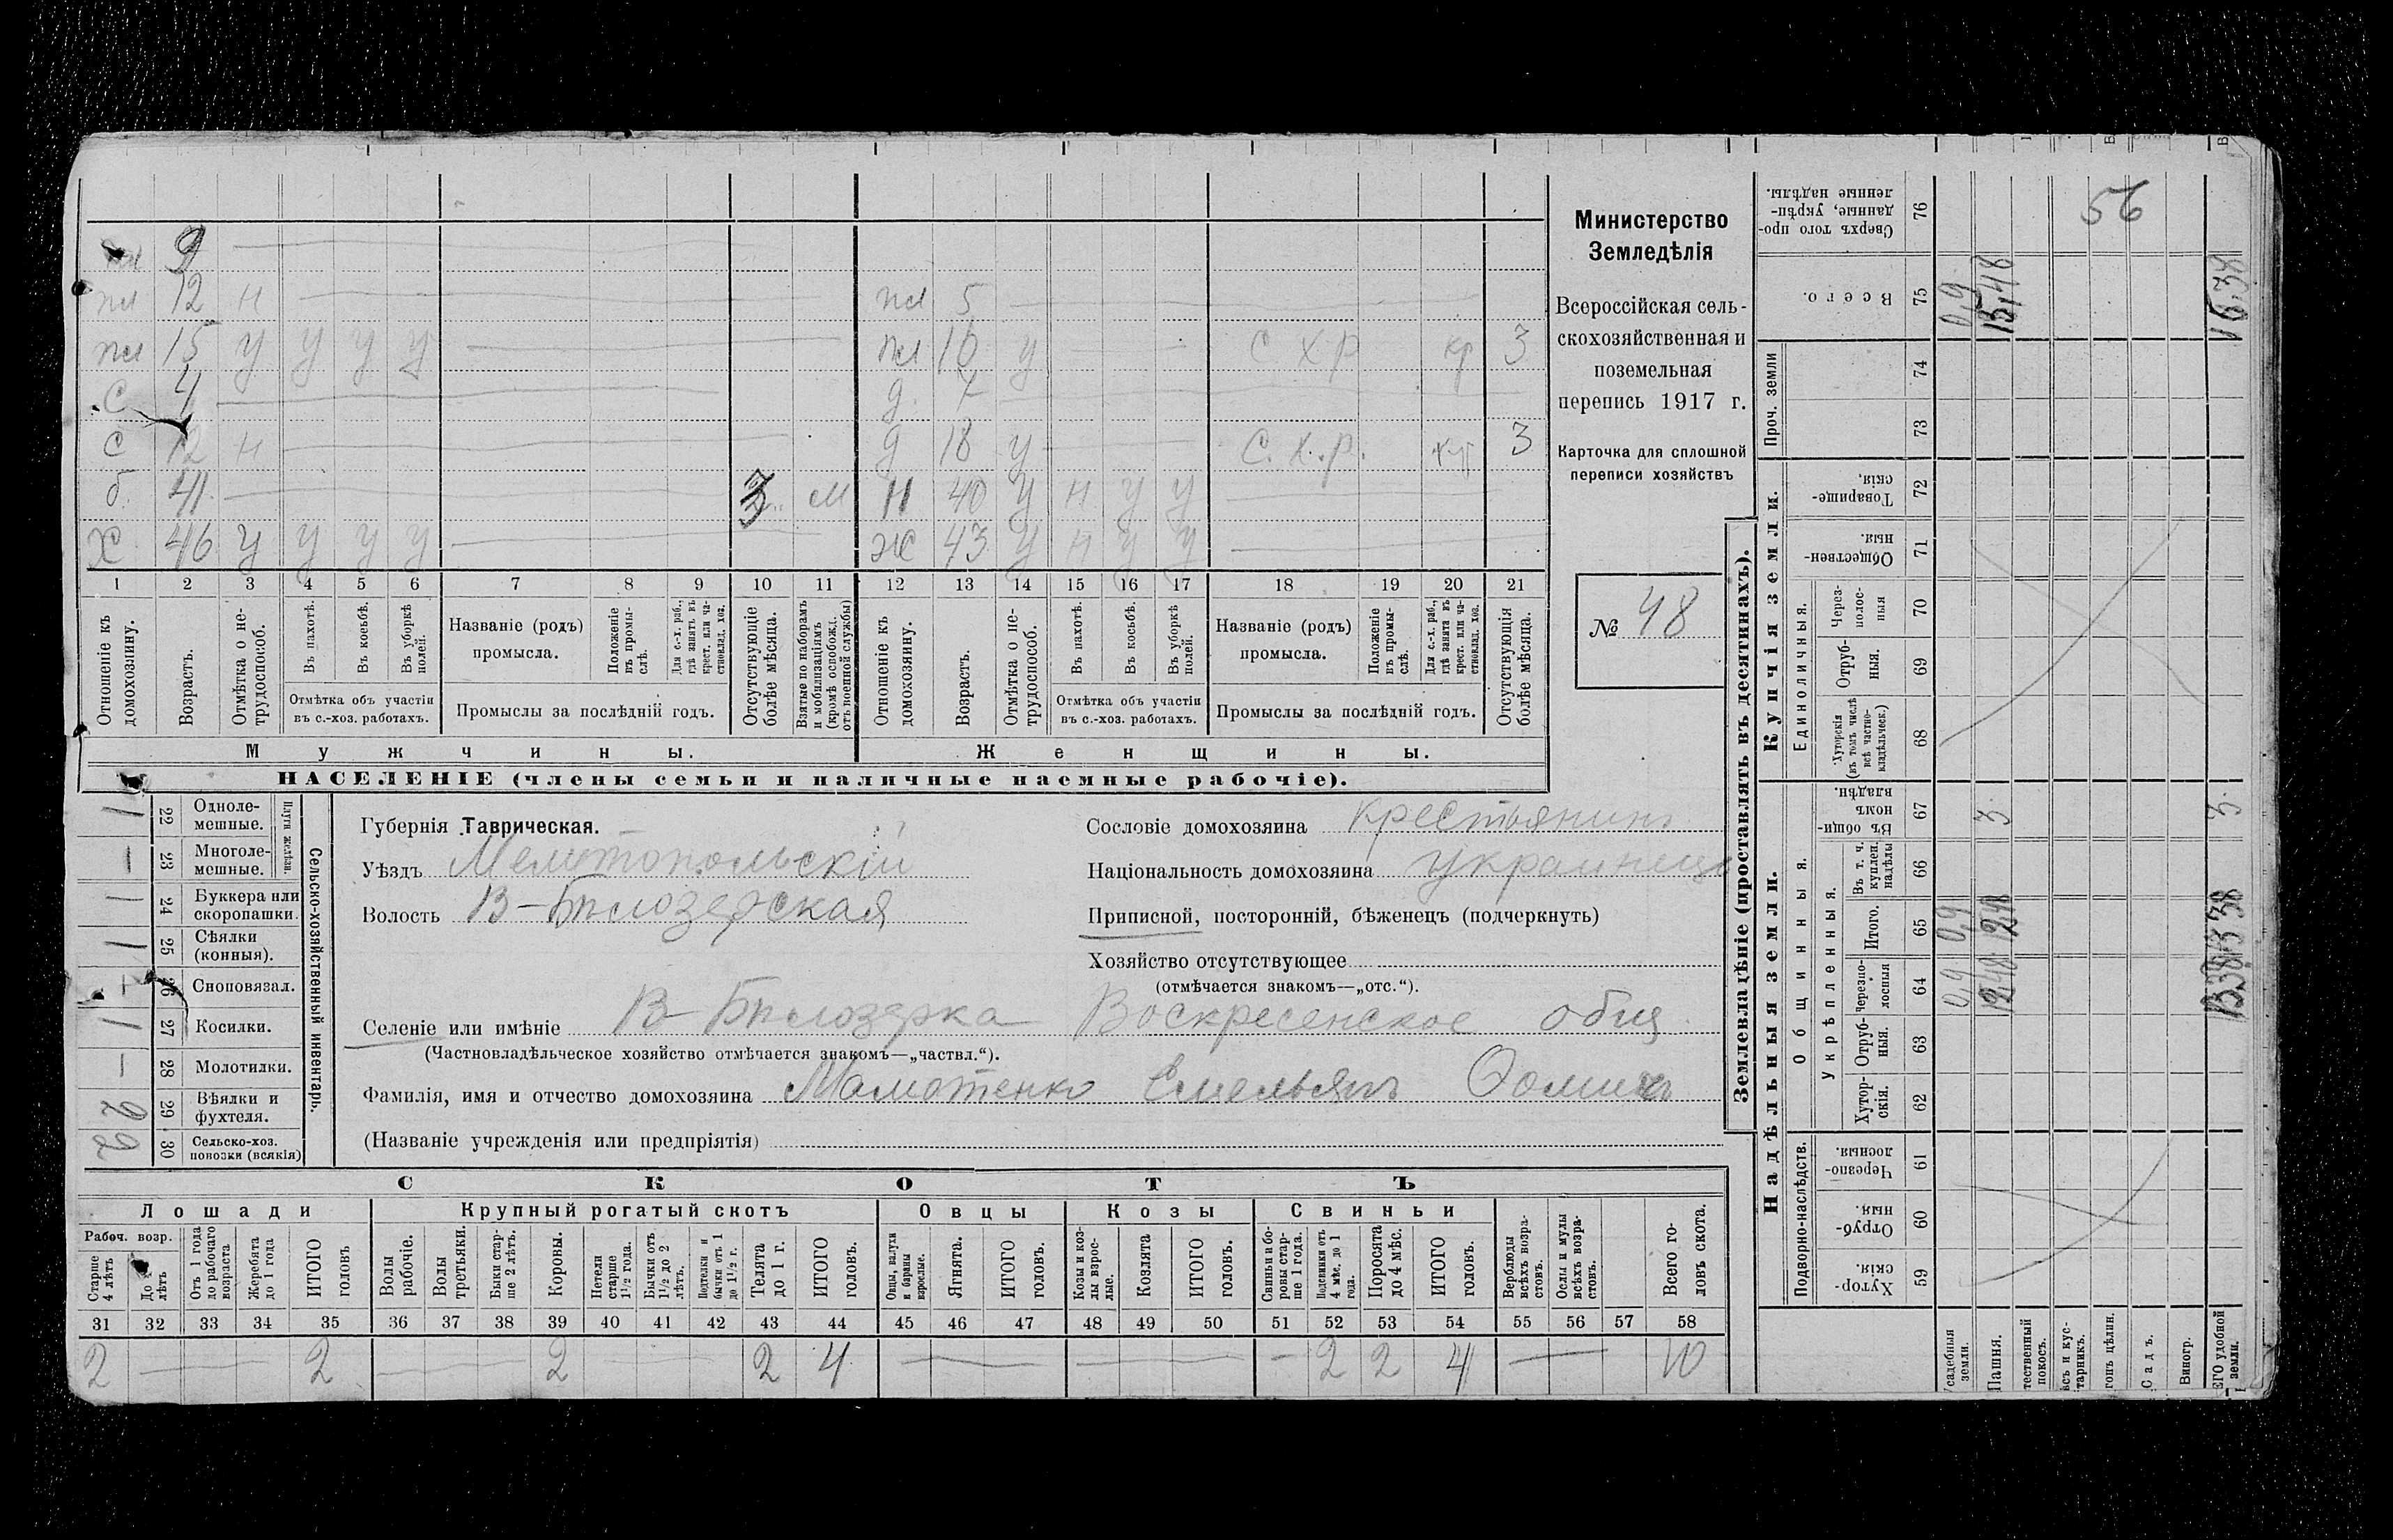 пл 9
пл 12 н — пл 5 —
пл 15 у у у у — пл 16 у — с х р кр 3
с 4 — д. —
с 12 н — д 18 у — С. х. р. 3
б. 41. — 3 м Н 40 у н у у —
Х 46 у у у у — Ж 43 у н у у —
1 2 3 4 5 6 7 8 9 10 11 12 13 14 15 16 17 18 19 20 21
Отношеніе къ домохозяину.
Возрастъ.
Отмѣтка о нетрудоспособ.
Въ пахотѣ.
Въ косьбѣ.
Въ уборкѣ полей.
Отмѣтка объ участіи въ с.-хоз. работахъ.
Названіе (родъ) промысла.
Положеніе въ промыслѣ.
Для с.-х. раб., гдѣ занятъ въ крест. или частновлад. хоз.
Промыслы за послѣдній годъ.
Отсутствующіе болѣе мѣсяца.
Взятые по наборамъ и мобилизаціямъ (кромѣ освобожд. отъ военной службы)
Отношеніе къ домохозяину.
Возрастъ.
Отмѣтка о нетрудоспособ.
Въ пахотѣ.
Въ косьбѣ.
Въ уборкѣ полей.
Отмѣтка объ участіи въ с.-хоз. работахъ.
Названіе (родъ) промысла.
Положеніе въ промыслѣ.
Для с.-х. раб., гдѣ занята въ крест. или частновлад. хоз.
Промыслы за послѣдній годъ.
Отсутствующія болѣе мѣсяца.
Мужчины. Женщины.
НАСЕЛЕНІЕ (члены семьи и наличные наемные рабочіе).
Министерство
Земледѣлія
Всероссійская сель-
скохозяйственная и
поземельная
перепись 1917 г.
Карточка для сплошной
переписи хозяйствъ
№ 48
Сельско-хозяйственный инвентарь.
Плуги желѣзн.
1 22 Одноле-мешные.
— 23 Многоле-мешные.
1 24 Буккера или скоропашки.
1 25 Сѣялки (конныя).
— 26 Сноповязал.
1 27 Косилки.
— 28 Молотилки.
2 29 Вѣялки и фухтеля.
2 30 Сельско-хоз. повозки (всякія)
Губернія Таврическая.
Уѣздъ Мелитопольскій
Волость В-Бѣлозерская
Сословіе домохозяина крестьянинъ
Національность домохозяина украинецъ
Приписной, посторонній, бѣженецъ (подчеркнуть)
Хозяйство отсутствующее
(отмѣчается знакомъ—„отс.“).
Селеніе или имѣніе В-Бѣлозерка Воскресенское общ
(Частновладѣльческое хозяйство отмѣчается знакомъ—„частвл.“).
Фамилія, имя и отчество домохозяина Маматенко Емельянъ Ѳомичъ
(Названіе учрежденія или предпріятія)
СКОТЪ
Лошади Крупный рогатый скотъ Овцы Козы Свиньи
Рабоч. возр.
Старше 4 лѣтъ
До лѣтъ
Отъ 1 года до рабочаго возраста
Жеребята до 1 года
ИТОГО головъ
Волы рабочіе.
Волы третьяки.
Быки старше 2 лѣтъ.
Коровы.
Нетели старше 1½ года.
Бычки отъ 1½ до 2 лѣтъ.
Подтелки и бычки отъ 1 до 1½ г.
Телята до 1 г.
ИТОГО головъ.
Овцы, валухи и бараны взрослые.
Ягнята.
ИТОГО головъ.
Козы и козлы взрослые.
Козлята
ИТОГО головъ.
Свиньи и боровы старше 1 года.
Подсвинки отъ 4 мѣс. до 1 года.
Поросята до 4 мѣс.
ИТОГО головъ.
Верблюды всѣхъ возрастовъ.
Ослы и мулы всѣхъ возрастовъ.
Всего головъ скота.
31 32 33 34 35 36 37 38 39 40 41 42 43 44 45 46 47 48 49 50 51 52 53 54 55 56 57 58
2 — 2 — 2 — 2 4 — — — 2 2 4 — 10
Землевладѣніе (проставлять въ десятинахъ).
Надѣльныя земли. Купчія земли. Проч. земли
Подворно-наслѣдств.
Хуторскія. 59
Отрубныя. 60
Черезполосныя. 61
Общинныя.
Укрѣпленныя.
Хуторскія. 62
Отрубныя. 63
Черезполосныя 64
Итого. 65
Въ т. ч. куплен. надѣлы 66
Въ общинномъ владѣн. 67
Единоличныя.
Хуторскія (въ томъ числѣ всѣ частновладѣльческ.) 68
Отрубныя. 69
Черезполосныя 70
Общественныя. 71
Товарищескія. 72
73
74
Всего. 75
Сверхъ того проданные, укрѣпленные надѣлы. 76
садебныя земли. 0,9 0,9 0,9
Пашня. 12,48 12,48 3. 15,48
тественный покосъ.
ъсъ и кустарникъ.
гонъ цѣлин.
Садъ.
Виногр.
ЕГО удобной земли. 13,38 13,38 3. 16,38
56